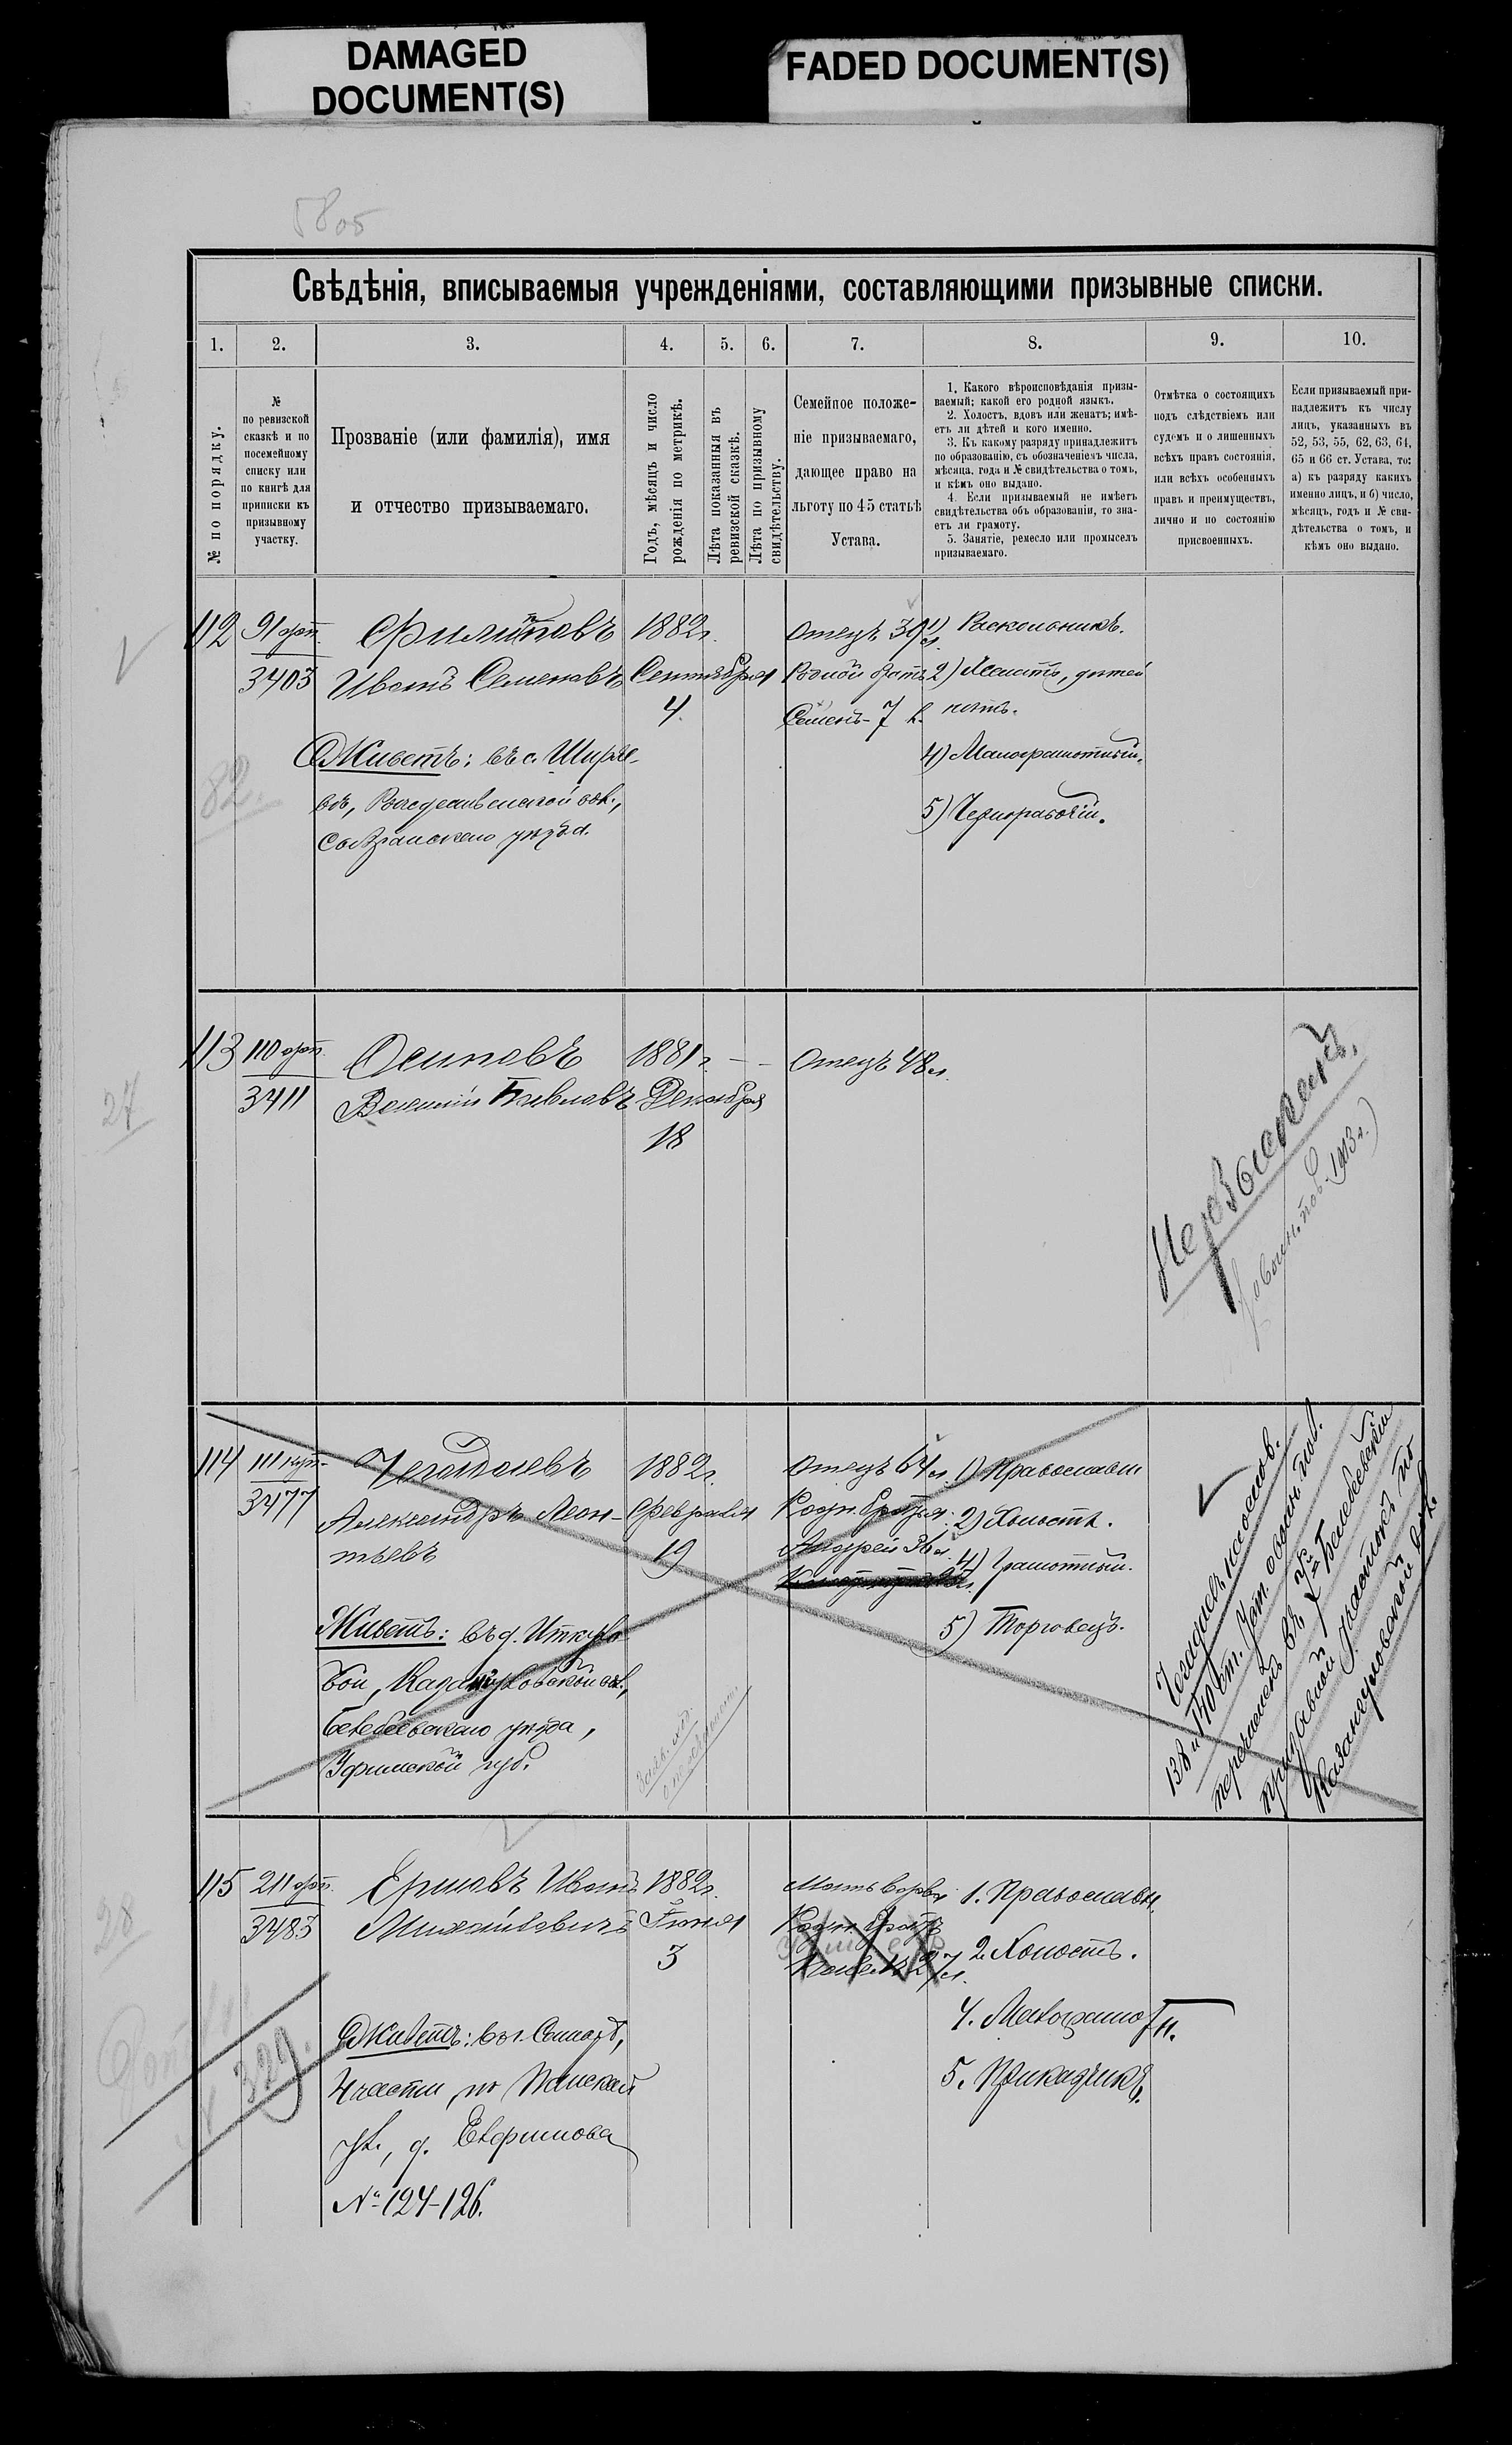 DAMAGED
DOCUMENT(S)
FADED DOCUMENT(S)
58об
Свѣдѣнія, вписываемыя учрежденіями, составляющими призывные списки.
1. 2. 3. 4. 5. 6. 7. 8. 9. 10.
№ по порядку.
№
по ревизской
сказкѣ и по
посемейному
списку или
по книгѣ для
приписки къ
призывному
участку.
Прозваніе (или фамилія), имя
и отчество призываемаго.
Годъ, мѣсяцъ и число
рожденія по метрикѣ.
Лѣта показанныя въ
ревизской сказкѣ.
Лѣта по призывному
свидѣтельству.
Семейное положе-
ніе призываемаго,
дающее право на
льготу по 45 статьѣ
Устава.
1. Какого вѣроисповѣданія призы-
ваемый; какой его родной языкъ.
2. Холостъ, вдовъ или женатъ; имѣ-
етъ ли дѣтей и кого именно.
3. Къ какому разряду принадлежитъ
по образованію, съ обозначеніемъ числа,
мѣсяца, года и № свидѣтельства о томъ,
и кѣмъ оно выдано.
4. Если призываемый не имѣетъ
свидѣтельства объ образованіи, то зна-
етъ ли грамоту.
5. Занятіе, ремесло или промыселъ
призываемаго.
Отмѣтка о состоящихъ
подъ слѣдствіемъ или
судомъ и о лишенныхъ
всѣхъ правъ состоянія,
или всѣхъ особенныхъ
правъ и преимуществъ,
лично и по состоянію
присвоенныхъ.
Если призываемый при-
надлежитъ къ числу
лицъ, указанныхъ въ
52, 53, 55, 62, 63, 64,
65 и 66 ст. Устава, то:
а) къ разряду какихъ
именно лицъ, и б) число,
мѣсяцъ, годъ и № сви-
дѣтельства о томъ, и
кѣмъ оно выдано.
112
91
3403
82.
Филиповъ
Иванъ Семеновъ
Живетъ: въ с. Ширяе-
вѣ, Рождественской вол.,
Сызранскаго уѣзда.
1882г.
Сентября
4.
Отецъ 39 л.
Родной братъ
Семенъ - 7 л.
1) Раскольникъ.
2) Женатъ, дѣтей
нѣтъ.
4) Малограмотный.
5) Чернорабочій.
27
113
110
3411
Осиповъ
Василій Павловъ
1881г.
Декабря
18
Отецъ 48 л.
Неявосkenъ
114
111
3477
Александръ Леон-
тьевъ
Живетъ: въ д. Иткуло-
вой, Казангуловской вол.,
Белебеевскаго уѣзда,
Уфимской губ.
1882г.
Февраля
19
Отецъ 64 л.
Родн. братья:
Андрей 36 л.
1) Православн
2) Холостъ.
4) Грамотный.
5) Торговецъ.
138 и 140 ст. Уст. о воин. пов.
перечисленъ въ Белебеевскій
призывной участокъ по
Казангуловской вол.
28
115
211
3483
329.
Ершовъ Иванъ
Михайловичъ
Живетъ: въ г. Самарѣ,
4 части, по Панской
ул., д. Евфимова
№ 124-126.
1882г.
Іюня
3
Мать вдова
Родн. братъ
27 л.
1. Православн.
2. Холостъ.
4. Малограмотн.
5. Приказчикъ.